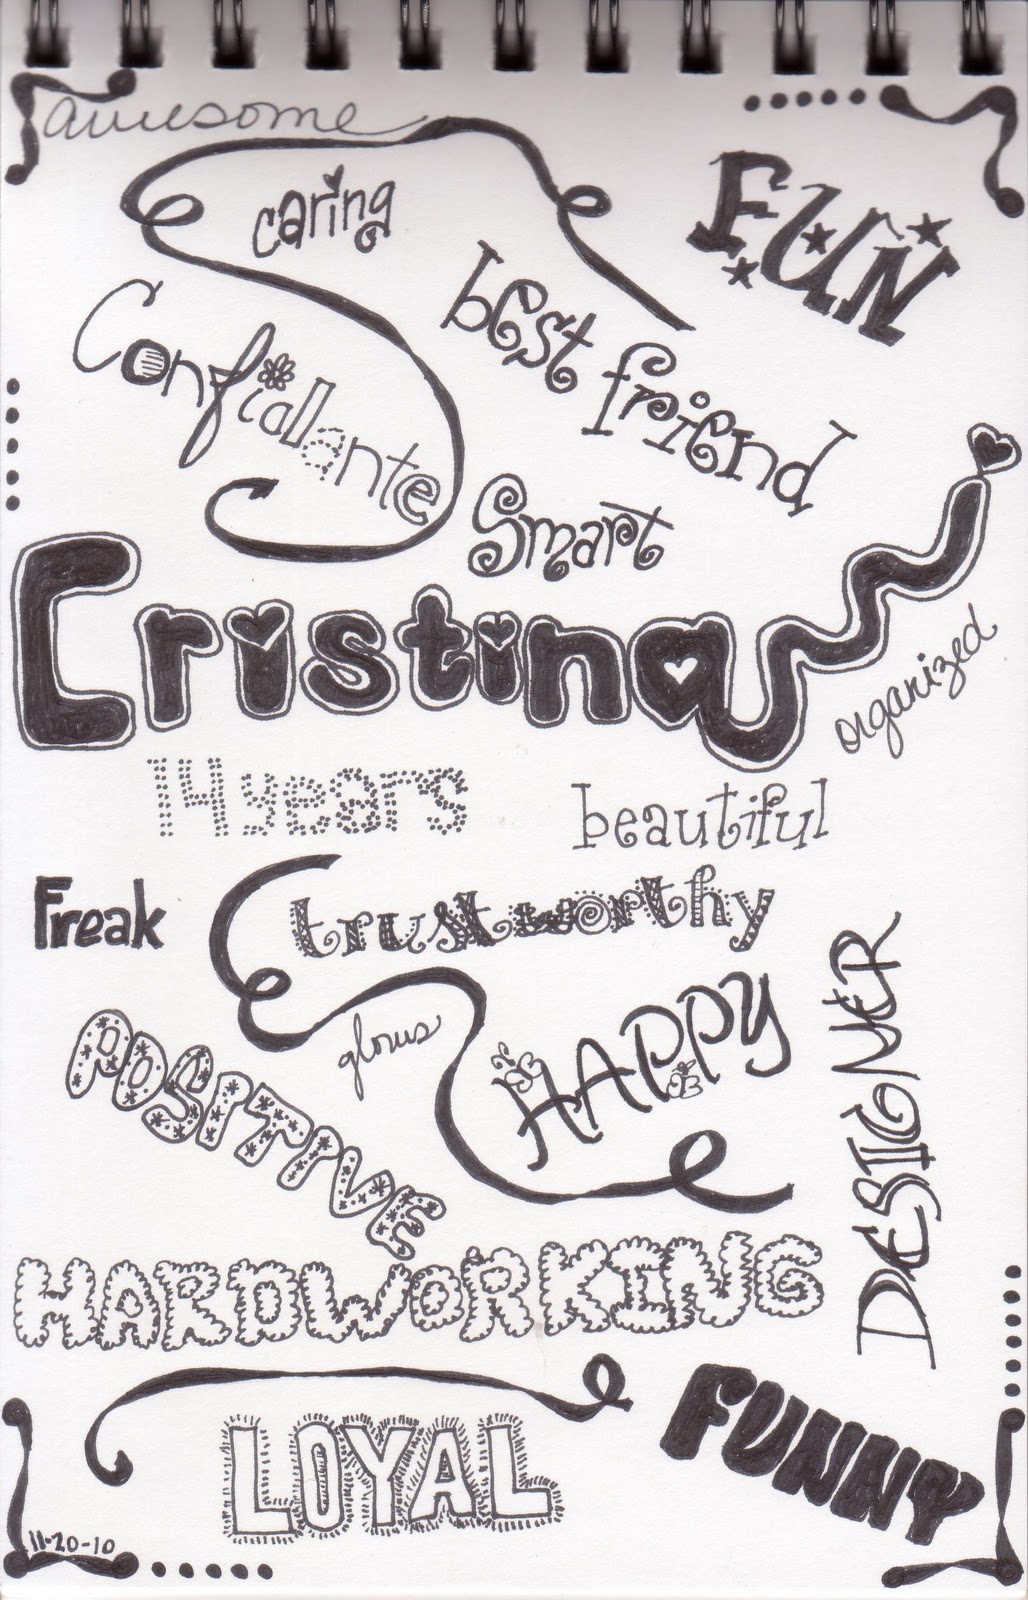 awesome
caring
FUN
best friend
Confidante
Smart
Cristina
organized
14 years
beautiful
Freak
trustworthy
HAPPY
DESIGNER
POSITIVE
HARDWORKING
LOYAL
FUNNY
11-20-10